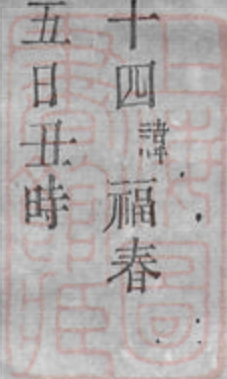 十四諱福春
五日丑時